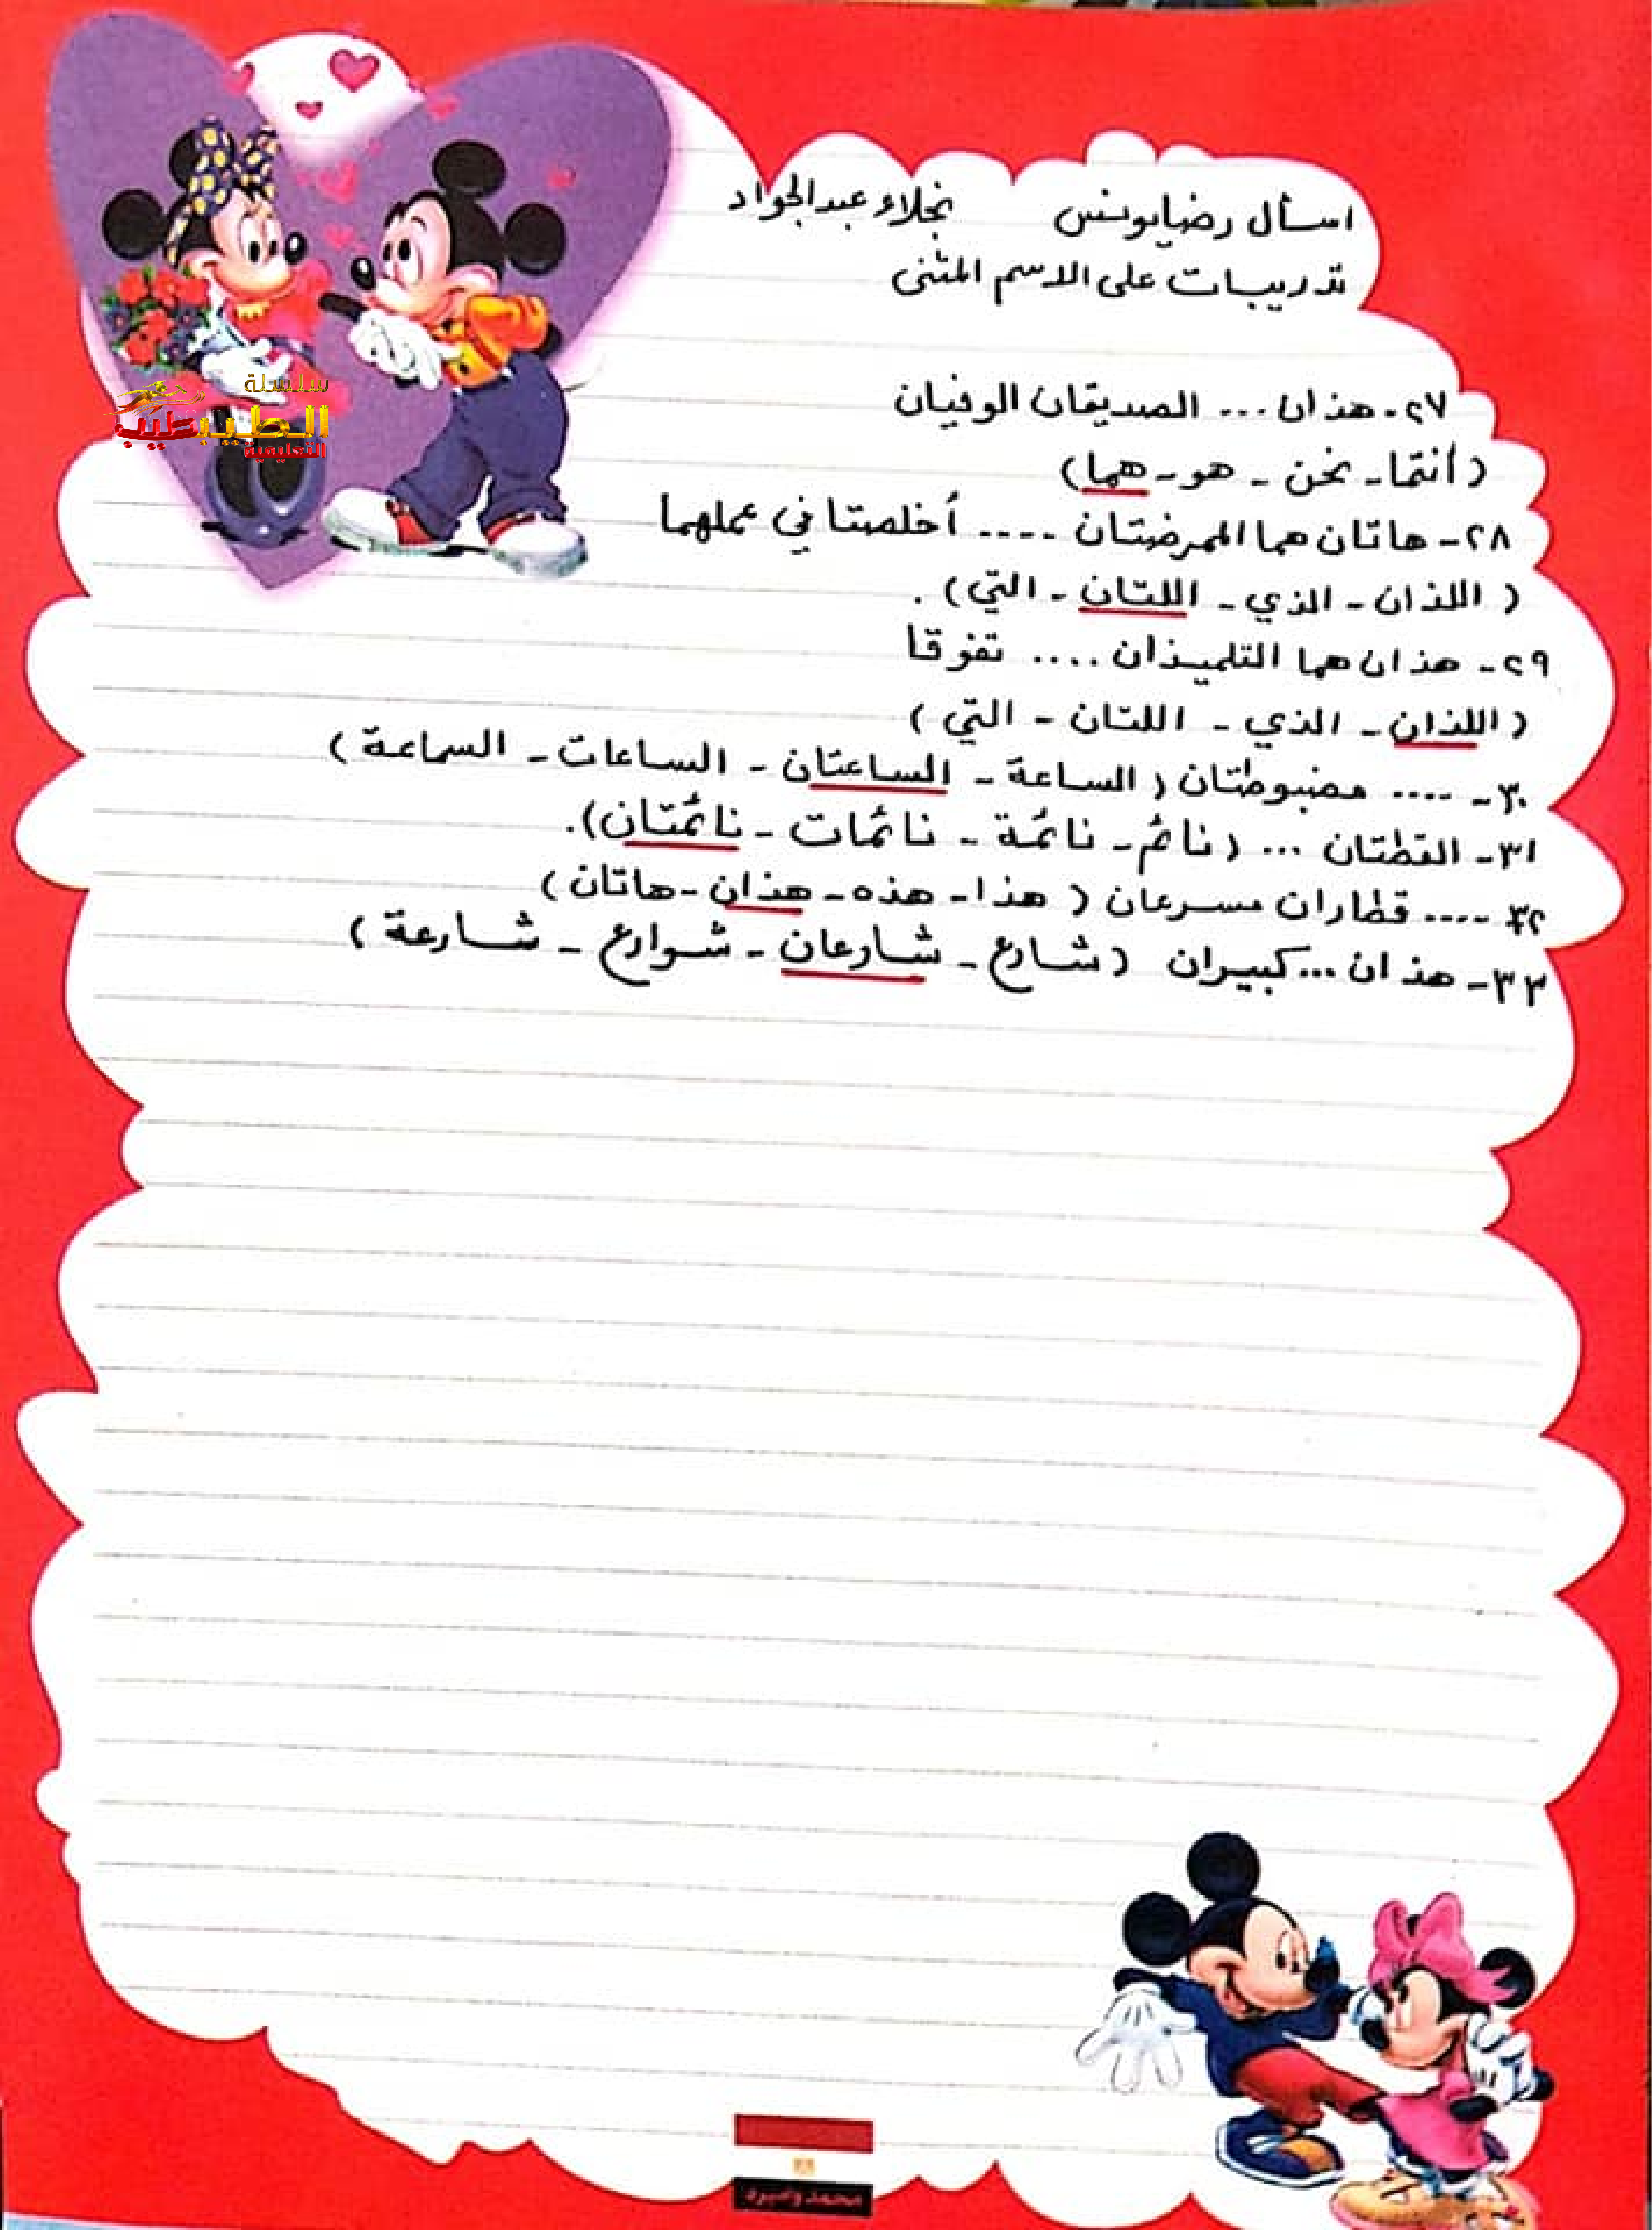 اسأل رضا يونس نجلاء عبد الجواد
تدريبات على الاسم المثنى
سلسلة
الطيب طيب
التعليمية
٢٧- هذان ... الصديقان الوفيان
(أنتما - نحن - هو - هما)
٢٨- هاتان هما الممرضتان .... أخلصتا في عملهما
(اللذان - الذي - اللتان - التي).
٢٩- هذان هما التلميذان .... تفوقا
(اللذان - الذي - اللتان - التي)
٣٠- .... مضبوطتان (الساعة - الساعتان - الساعات - السماعة)
٣١- القطتان ... (نائم - نائمة - نائمات - نائمتان).
٣٢- .... قطاران مسرعان (هذا - هذه - هذان - هاتان)
٣٣- هذان ... كبيران (شارع - شارعان - شوارع - شارعة)